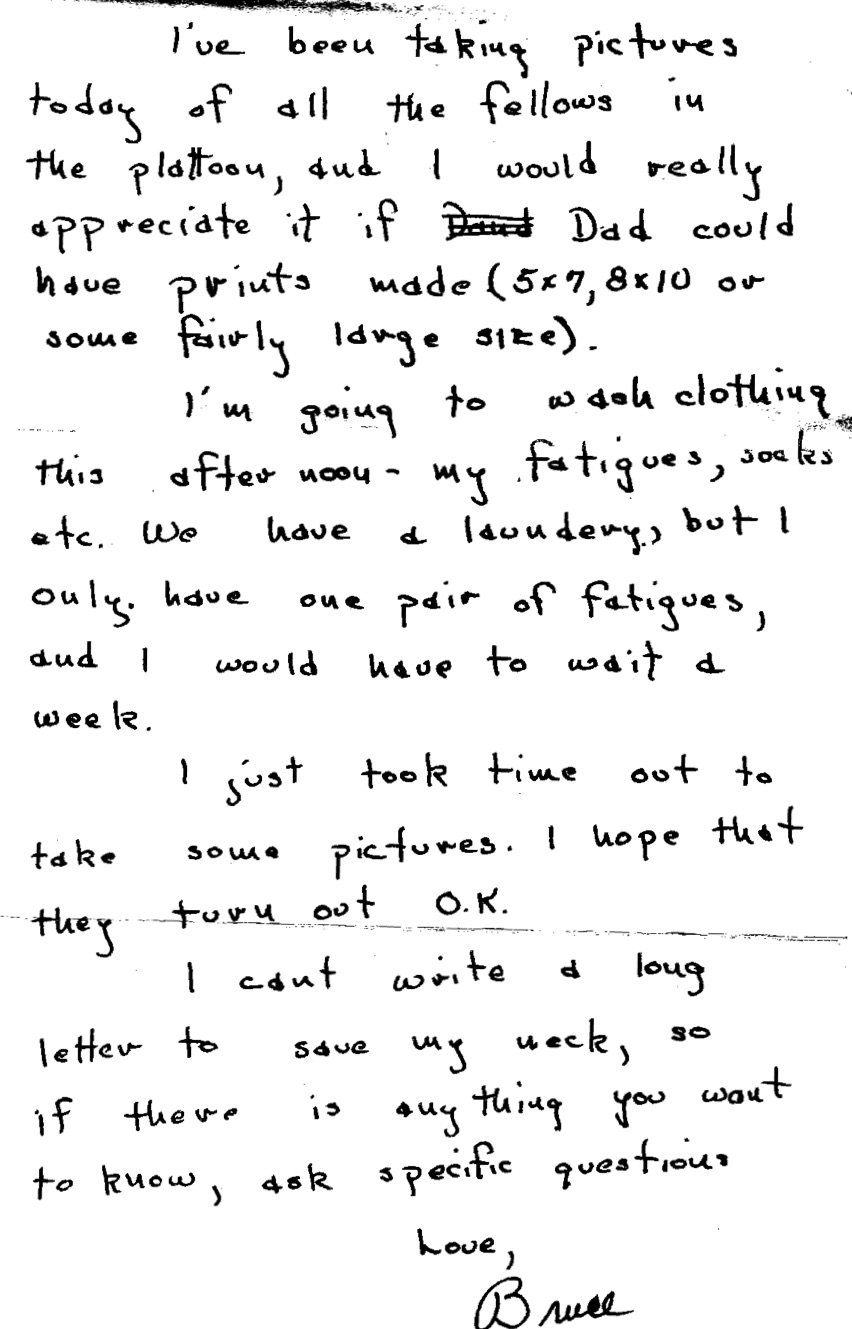 I've been taking pictures
today of all the fellows in
the plattoon, and I would really
appreciate it if Dad could
have prints made (5x7, 8x10 or
some fairly large size).
I'm going to wash clothing
this afternoon - my fatigues, socks
etc. We have a laundery, but I
only have one pair of fatigues,
and I would have to wait a
week.
I just took time out to
take some pictures. I hope that
they turn out O.K.
I cant write a long
letter to save my neck, so
if there is anything you want
to know, ask specific questions
Love,
Bruce